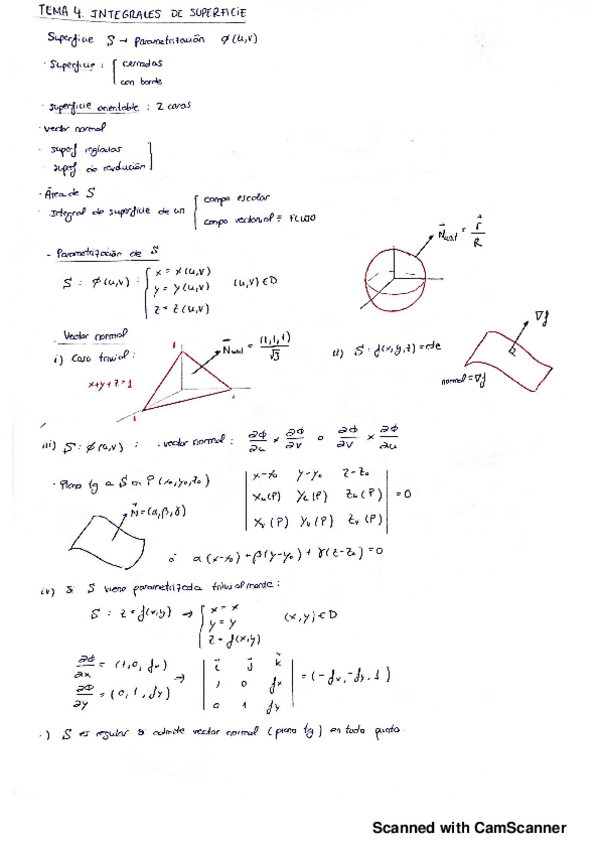 TEMA 4. INTEGRALES DE SUPERFICIE
Superficie S → Parametrización φ(u,v)
· Superficie: { cerradas
con borde
· superficie orientable : 2 caras
· vector normal
· superf regladas
· superf. de revolución
· Área de S
· Integral de superficie de un { campo escalar
campo vectorial = FLUJO
- Parametrización de S
S : φ(u,v) : { x = x(u,v)
y = y(u,v) (u,v) ∈ D
z = z(u,v)
N unit = r/R
. Vector normal
i) Caso trivial :
x+y+z=1
N unit = (1,1,1)/√3
1
1
1
ii) S : f(x,y,z)=cte
∇f
normal = ∇f
iii) S : φ(u,v) : · vector normal : ∂φ/∂u × ∂φ/∂v o ∂φ/∂v × ∂φ/∂u
· Plano tg a S en P(x₀,y₀,z₀)
| x-x₀ y-y₀ z-z₀ |
| xu(P) yu(P) zu(P) | = 0
| xv(P) yv(P) zv(P) |
N=(α,β,γ)
ó α(x-x₀)+β(y-y₀)+γ(z-z₀)=0
iv) Si S viene parametrizada trivialmente :
S : z = f(x,y) → { x = x
y = y (x,y) ∈ D
z = f(x,y)
∂φ/∂x = (1,0,fx)
∂φ/∂y = (0,1,fy)
→ | i j k |
| 1 0 fx | = (-fx,-fy,1)
| 0 1 fy |
·) S es regular si admite vector normal (plano tg) en todo punto.
Scanned with CamScanner